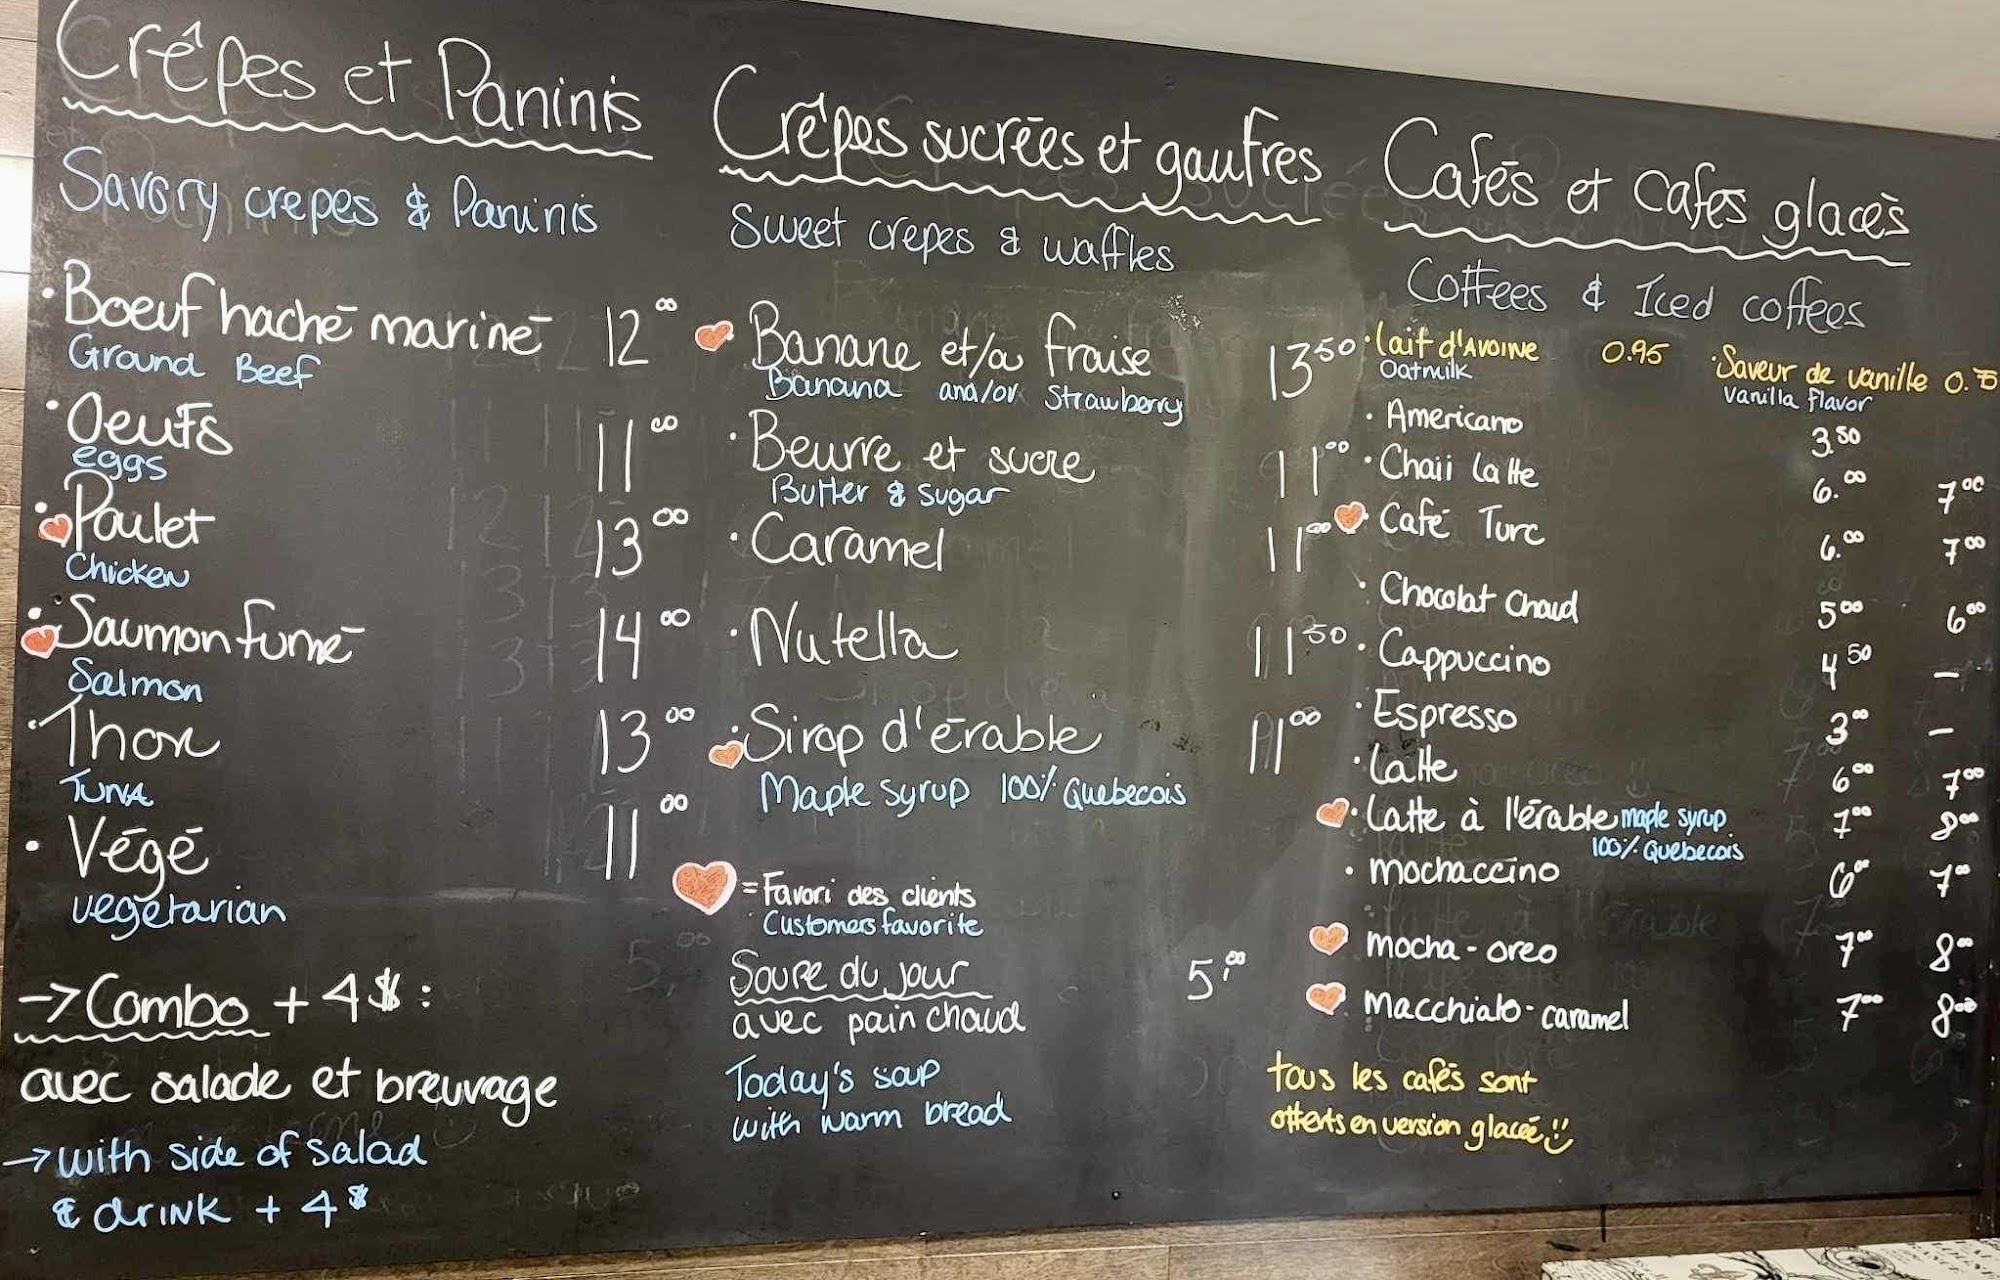 Crêpes et Paninis
Savory crepes & Paninis
• Boeuf haché mariné 12⁰⁰
Ground Beef
• Oeufs 11⁰⁰
eggs
• Poulet 13⁰⁰
Chicken
• Saumon fumé 14⁰⁰
Salmon
• Thon 13⁰⁰
Tuna
• Végé 11⁰⁰
vegetarian
→ Combo + 4$ :
avec salade et breuvage
→ with side of salad
& drink + 4$
Crêpes sucrées et gaufres
Sweet crepes & waffles
Banane et/ou fraise 13⁵⁰
Banana and/or Strawberry
• Beurre et sucre 11⁰⁰
Butter & sugar
• Caramel 11⁰⁰
• Nutella 11⁵⁰
• Sirop d'érable 11⁰⁰
Maple syrup 100% Quebecois
= Favori des clients
Customers favorite
Soupe du jour 5,⁰⁰
avec pain chaud
Today's soup
with warm bread
Cafés et cafés glacés
Coffees & Iced coffees
• lait d'AVOINE 0.95 • Saveur de vanille
Oatmilk vanilla flavor
• Americano 3.⁵⁰
• Chaii latte 6.⁰⁰ 7⁰⁰
• Café Turc 6.⁰⁰ 7⁰⁰
• Chocolat Chaud 5⁰⁰ 6⁰⁰
• Cappuccino 4⁵⁰ –
• Espresso 3⁰⁰ –
• Latte 6⁰⁰ 7⁰⁰
• Latte à l'érable maple syrup 7⁰⁰ 8⁰⁰
100% Quebecois
• mochaccino 6⁰⁰ 7⁰⁰
mocha - oreo 7⁰⁰ 8⁰⁰
macchiato - caramel 7⁰⁰ 8⁰⁰
tous les cafés sont
offerts en version glacée!!